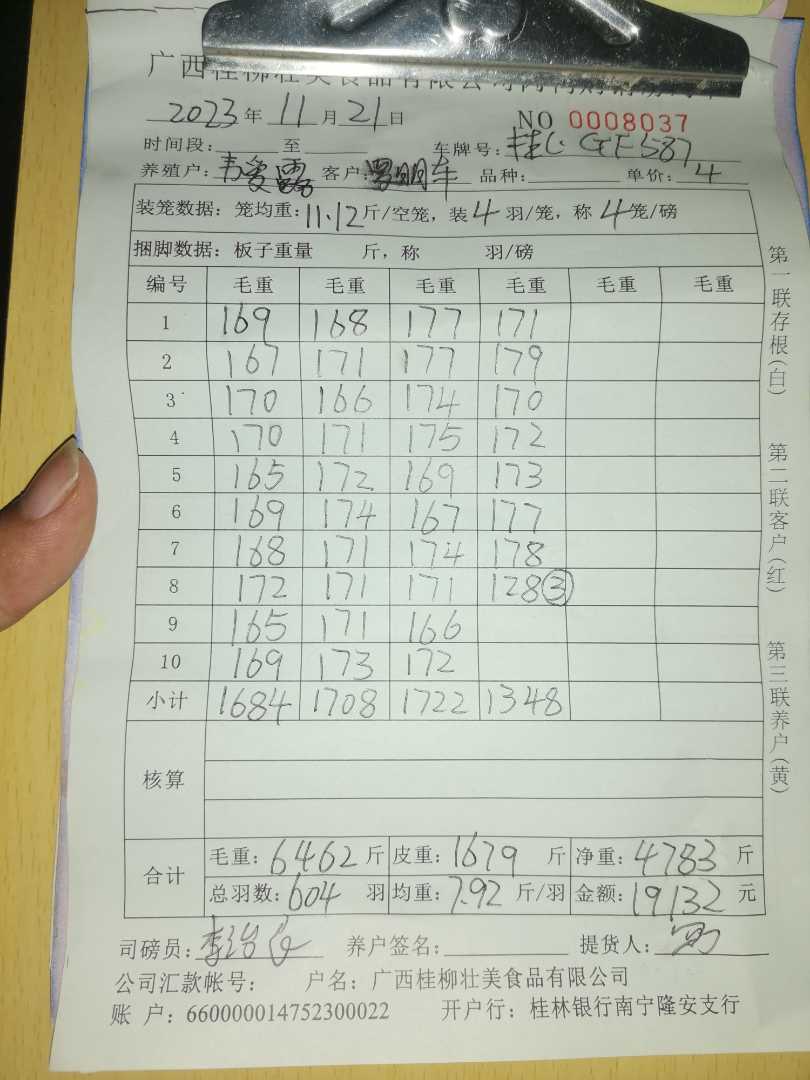 广西桂柳壮美食品有限公司
2023年 11月 21日 NO 0008037
时间段: 至 车牌号: 桂 GF587
养殖户: 韦 客户: 明车 品种: 单价: 4
装笼数据: 笼均重: 11.12斤/空笼, 装4羽/笼, 称4笼/磅
捆脚数据: 板子重量 斤, 称 羽/磅
编号 毛重 毛重 毛重 毛重 毛重 毛重
1 169 168 177 171
2 167 171 177 179
3 170 166 174 170
4 170 171 175 172
5 165 172 169 173
6 169 174 167 177
7 168 171 174 178
8 172 171 171 128③
9 165 171 166
10 169 173 172
小计 1684 1708 1722 1348
核算
合计 毛重: 6462斤 皮重: 1679斤 净重: 4783斤
总羽数: 604羽 均重: 7.92斤/羽 金额: 19132元
司磅员: 李 养户签名: 提货人:
公司汇款帐号: 户名: 广西桂柳壮美食品有限公司
账 户: 660000014752300022 开户行: 桂林银行南宁隆安支行
第一联存根(白) 第二联客户(红) 第三联养户(黄)